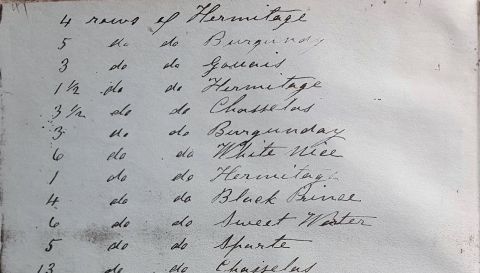 4 rows of Hermitage
5 do do Burgundy
3 do do Gouais
1 1/2 do do Hermitage
3 1/2 do do Chasselas
3 do do Burgunday
6 do do White Nice
1 do do Hermitage
4 do do Black Prince
6 do do Sweet Water
5 do do Sparte
13 do do Chasselas